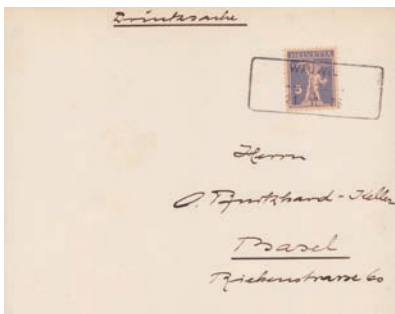 Drucksache
HELVETIA
5
Herrn
O. Burckhard-Keller
Basel
Riehenstrasse 60